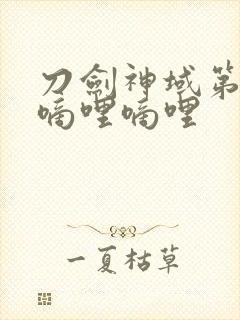 刀劍神域第
嘀哩嘀哩
一夏枯草